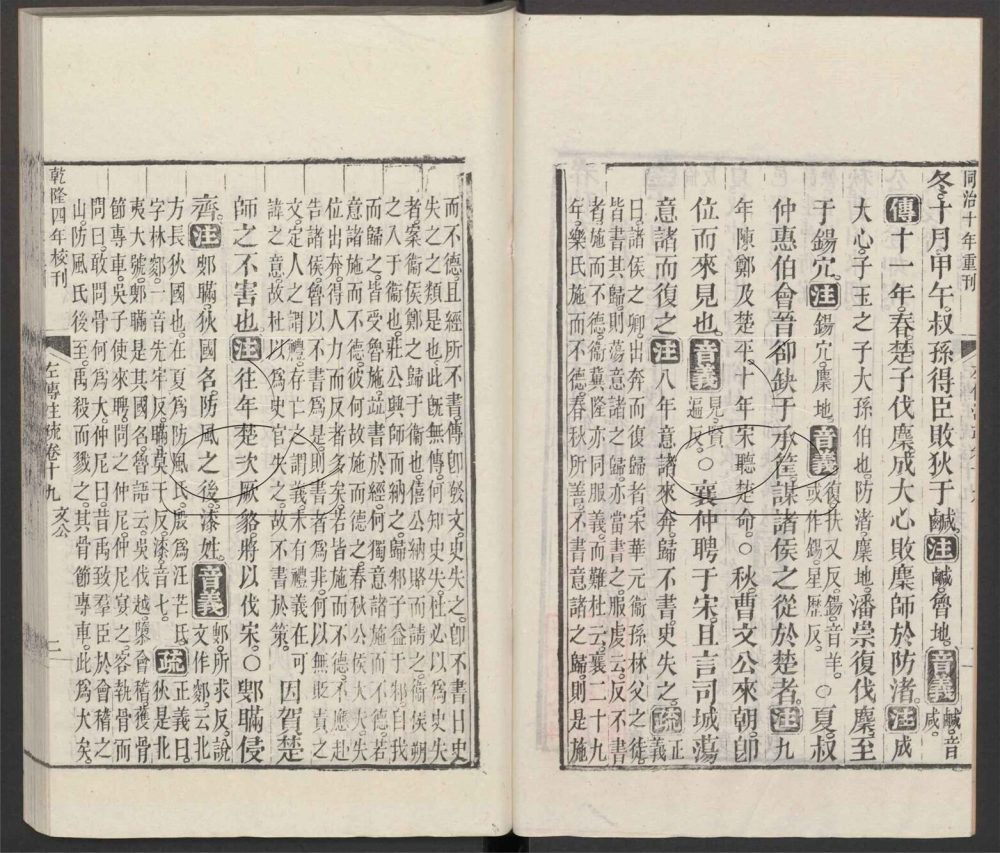 同治十年重刊
冬十月甲午。叔孫得臣敗狄于鹹。注鹹。魯地。音義鹹。音咸。
傳十一年。春。楚子伐麇。成大心敗麇師於防渚。注成
大心。子玉之子大孫伯也。防渚。麇地。潘崇復伐麇。至
于錫穴。注錫穴。麇地。音義復。扶又反。錫。音羊。或作錫。星歷反。○夏。叔
仲惠伯會晉郤缺于承筐。謀諸侯之從於楚者。注九
年。陳鄭及楚平。十年。宋聽楚命。○秋。曹文公來朝。卽
位而來見也。音義見。賢遍反。○襄仲聘于宋。且言司城蕩
意諸而復之。注八年。意諸來奔。歸不書。史失之。疏正義
曰。諸侯之卿出奔而復歸者。宋華元衞孫林父之徒
皆書其歸。則蕩意諸之歸。亦當書之。服虔云。反不書
者。施而不德。衞冀隆亦同服義。而難杜云。襄二十九
年。樂氏施而不德。春秋所善。不書意諸之歸。則是施
而不德。且經所不書。傳卽發文。史失之。卽不書日史
失之之類是也。此旣無傳。何知史失。杜必以爲史失
者。案衞侯鄭之歸于衞也。僖公納賂而請之。衞侯朔
之入于衞也。莊公興師而納之。歸邾子益于邾。自我
而歸之。皆受魯施。竝書於經。何獨意諸施而不德。若
意諸施而不德。彼何故施而德之。春秋諸侯大夫失
位出奔。得人力而反者多矣。若皆施而不德。不應赴
告諸侯。魯以不書爲是。則書者爲非。何以無貶責之
文。定人之謂禮。存亡之謂義。未有禮義在可
諱之意。故杜以爲史官失之。故不書於策。因賀楚
師之不害也。注往年楚次厥貉。將以伐宋。○鄋瞞侵
齊。注鄋瞞。狄國名。防風之後。漆姓。音義鄋。所求反。說文作鄋。云北
方長狄國也。在夏爲防風氏。殷爲汪芒氏。
字林鄋。一音先牢反。瞞。莫干反。漆。音七。疏正義曰。狄是北
夷大號。鄋瞞是其國名。魯語云。吳伐越。墮會稽。獲骨
節專車。吳子使來聘。問之仲尼。仲尼賓之。客執骨而
問曰。敢問骨何爲大。仲尼曰。昔禹致羣臣於會稽之
山。防風氏後至。禹殺而戮之。其骨節專車。此爲大矣。
乾隆四年校刊
左傳注疏卷十九
文公
二